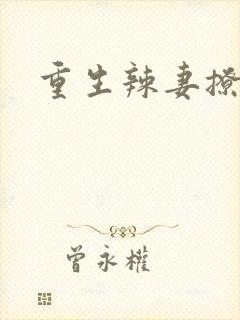 重生辣妻撩
曾永權